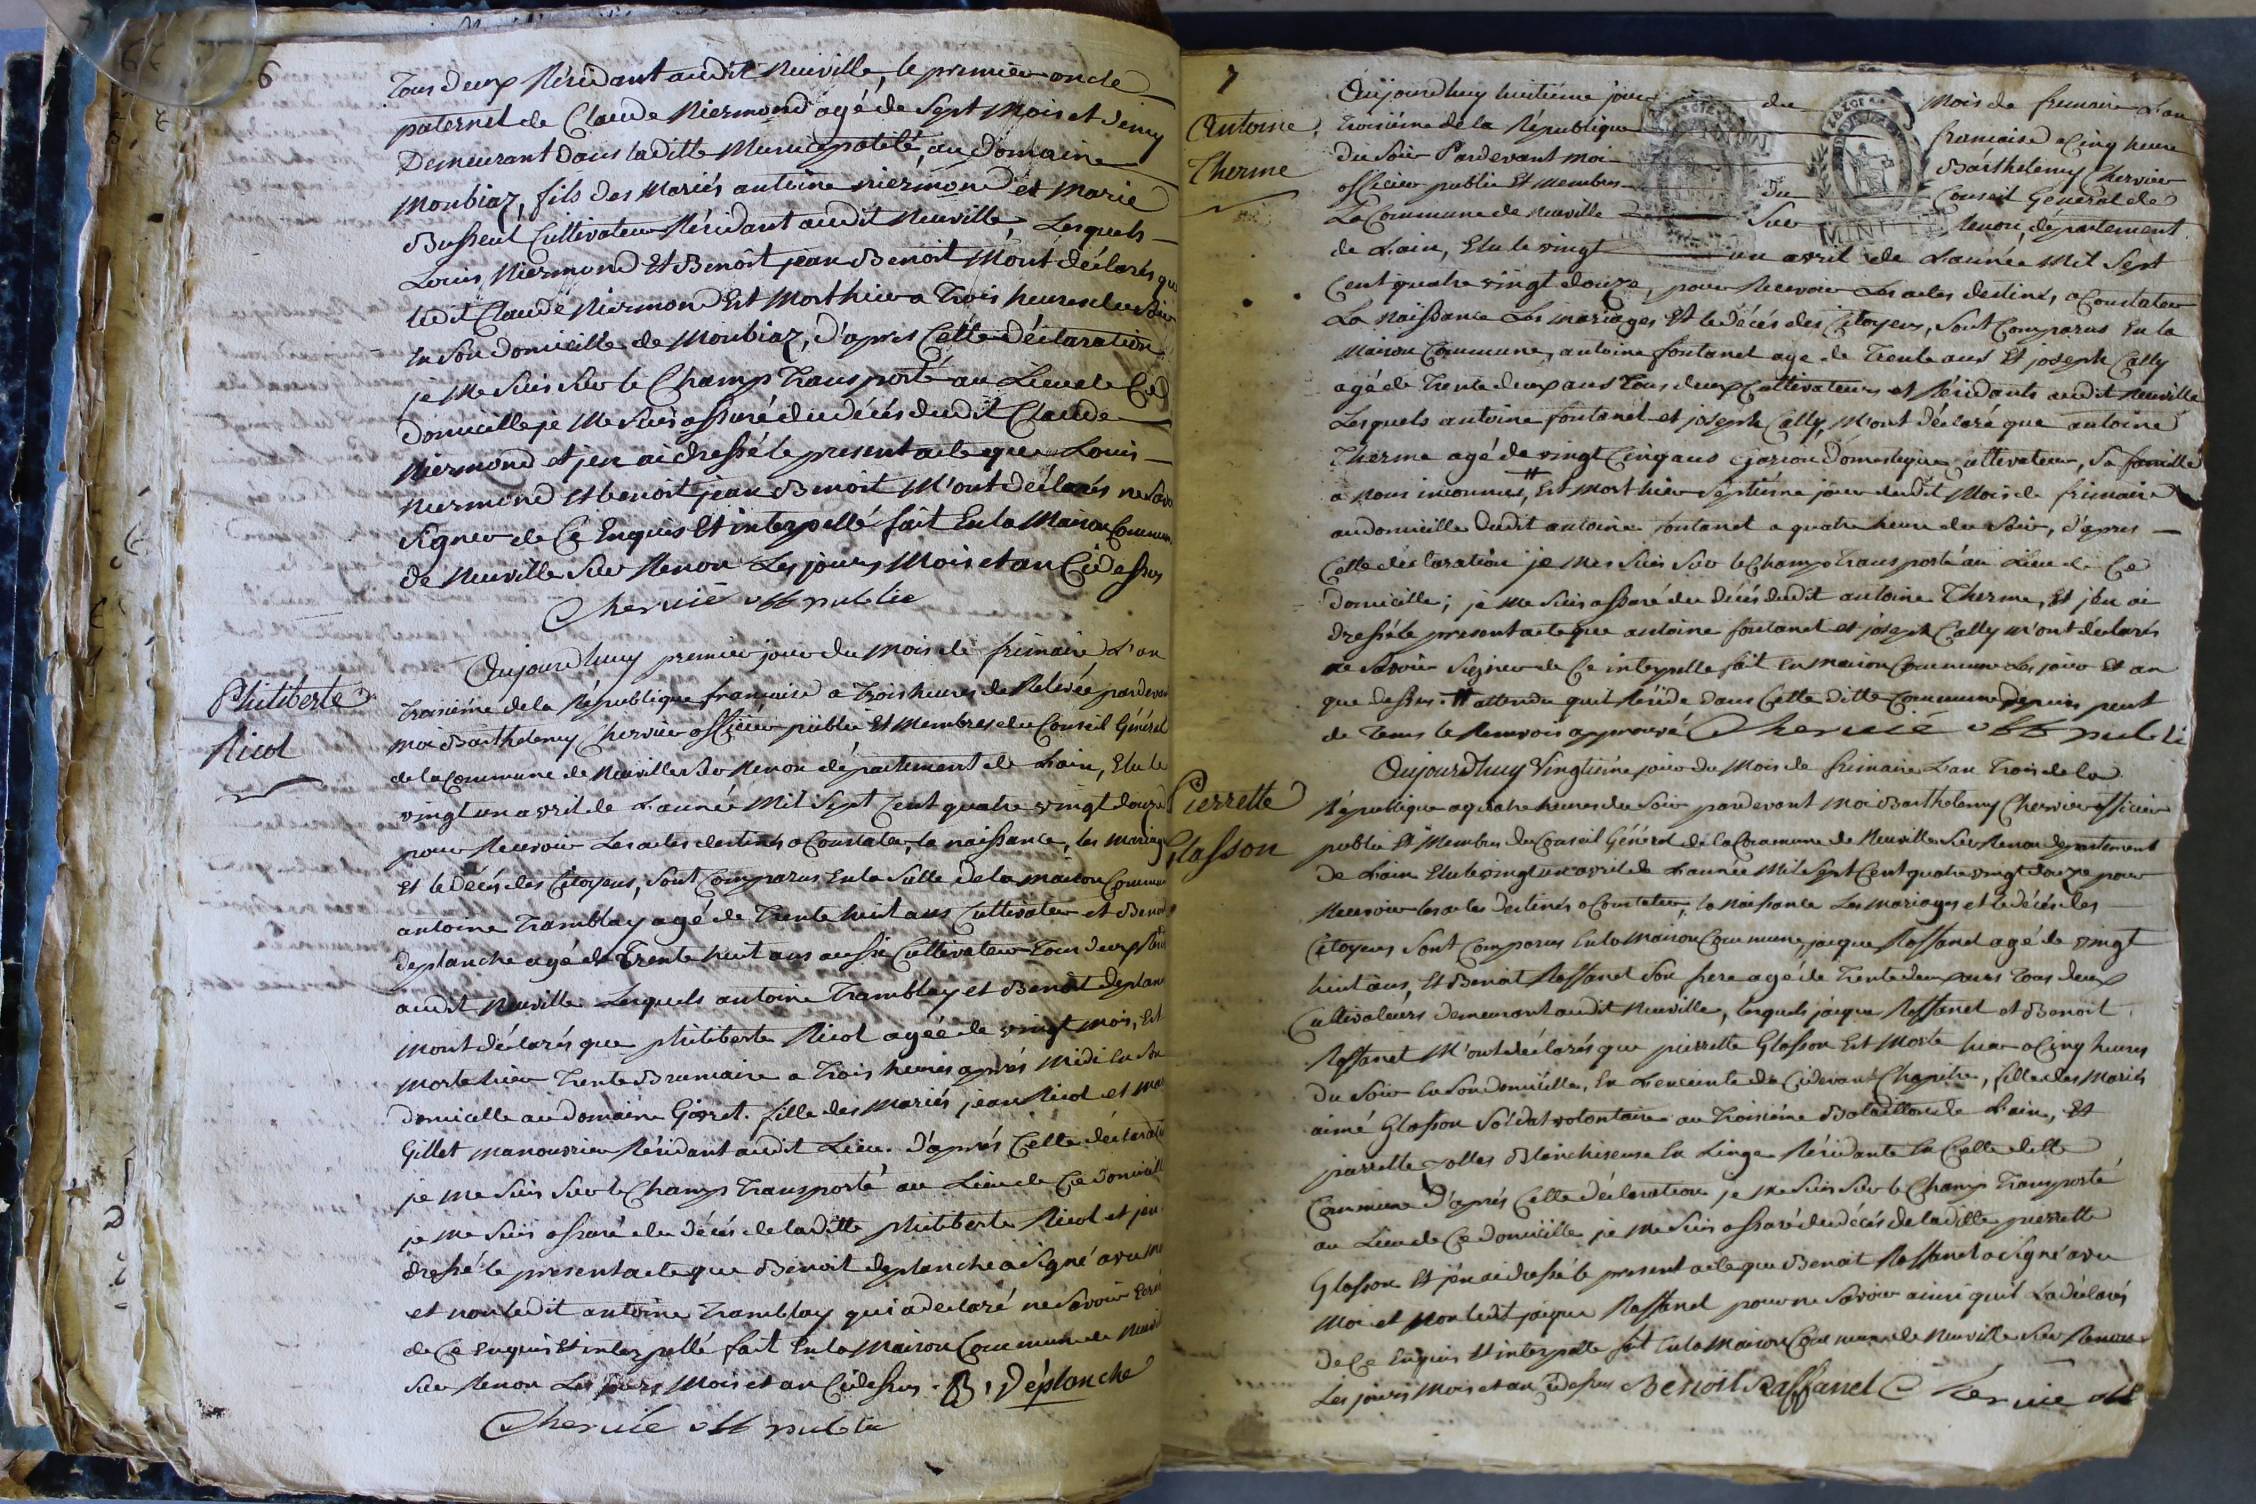 6
tous deux Résidant audit Neuville, le premier oncle
paternel de Claude Niermond agé de Sept Mois et demy
Demeurant dans la ditte Municipalité, au domaine
Monbiaz, fils des Mariés antoine niermond et Marie
Busseul Cultivateur Résidant audit Neuville, Lesquels
Louis Niermond Et Benoît jean Benoit M'ont déclarés que
ledit Claude Niermond Est Mort hier a Trois heures du Soir
En Son domicille de Monbiaz, d'apres Cette déclaration
je Me Suis Sur le Champ Transporté au Lieu de Ce
domicille je Me Suis assuré du décés dudit Claude
Niermond et jen ai dressé le present acte que Louis
niermond Et benoit jean Benoit M'ont déclarés ne Savoir
Signer de Ce Enquis Et interpellé fait En la Maison Commune
de Neuville Sur Renon Les jours Mois et an Cidessus
Chervié off public
Philiberte
Nicol
Aujourdhuy premier jour du Mois de frimaire L'an
Troisiéme de la République francaise a Trois heures de Relevée pardevant
Moi Barthelemy Chervier officier public Et Membres du Conseil Général
de la Commune de Neuville Sur Renon département de Lain, Elu le
vingt un avril de L'année Mil Sept Cent quatre vingt douze
pour Recevoir Les actes destinés a Constater, la naissance, les Mariages
Et le décés des Citoyens, Sont Comparus En la Salle de la Maison Commune
antoine Tramblay agé de Trente huit ans Cultivateur et Benoit
deplanche agé de Trente huit ans aussi Cultivateur Tous deux
audit Neuville Lesquels antoine Tramblay et Benoit deplanche
Mont déclarés que philiberte Nicol agée de vingt Mois, Est
Morte hier Trente Brumaire a Trois heures aprés Midi En Son
domicille au domaine Gorret. fille des Mariés jean Nicol et
Gillet manouvrier Résidant audit Lieu. d'aprés Cette déclaration
je Me Suis Sur le Champ Transporté au Lieu de Ce Domicille
je Me Suis assuré du décés de la ditte philiberte Nicol et jen
dressé le present acte que Benoit deplanche a Signé avec Moi
et non ledit antoine Tramblay qui a declaré ne Savoir
de Ce Enquis Et interpellé fait En la Maison Commune de Neuville
Sur Renon Les jours Mois et an Cidessus. B, Déplanche
Chervié off public
7
Antoine
Therme
Aujourdhuy huitiéme jour du Mois de frimaire L'an
Troisiéme de la République francaise a Cinq heure
du Soir Pardevant Moi Barthelemy Chervier
officier public Et Membres du Conseil Général de
La Commune de Neuville Sur Renon, département
de Lain, Elu le vingt un avril de L'année Mil Sept
Cent quatre vingt douze, pour Recevoir Les actes destinés a Constater
La Naissance Les mariages Et le décés des Citoyens, Sont Comparus En la
Maison Commune, antoine fontanel age de Trente ans Et joseph Cally
agé de Trente deux ans Tous deux Cultivateurs et Résidants audit Neuville
Lesquels antoine fontanel et joseph Cally, M'ont déclaré que antoine
Therme agé de vingt Cinq ans Garcon Domestique Cultivateur, Sa famille
a Nous inconnue, Est Mort hier Septiéme jour dudit Mois de frimaire
au domicille dudit antoine fontanel a quatre heure du Soir, d'apres
Cette déclaration je Mes Suis Sur le Champ Transporté au Lieu de Ce
Domicille; je Me Suis assuré du décés dudit antoine Therme, Et j'en ai
dressé le present acte que antoine fontanel et joseph Cally m'ont déclarés
ne Savoir Signer de Ce interpelle fait En Maison Commune Les jour Et an
que dessus. # attendu quil Réside dans Cette ditte Commune depuis peut
de Tems le Renvois approuvé Chervié off publi
Pierrette
Glasson
Aujourdhuy Vingtiéme jour du Mois de frimaire L'an Trois de la
République a quatre heures du Soir pardevant Moi Barthelemy Chervier officier
public Et Membres du Conseil Général de la Commune de Neuville Sur Renon departement
de Lain Elu le vingt un avril de L'année Mil Sept Cent quatre vingt douze pour
Recevoir les actes Destinés a Constater, la Naissance Les Mariages et le décés des
Citoyens Sont Comparus En la Maison Commune, jacque Raffanel agé de vingt
huit ans, Et Benoit Raffanel Son frere agé de Trente deux ans Tous deux
Cultivateurs demeurant audit Neuville, lesquels jacque Raffanel et Benoit
Raffanel M'ont déclarés que pierrette Glasson Est Morte hier a Cinq heures
du Soir En Son domicille, En L'enceinte du Cidevant Chapitre, fille des Mariés
aimé Glasson Soldat volontaire au Troisiéme Bataillon de Lain, Et
pierrette Blanchiseuse En Linge Résidante En Cette ditte
Commune D'aprés Cette déclaration je Me Suis Sur le Champ Transporté
au Lieu de Ce domicille je Me Suis assuré du décés de la ditte pierrette
Glasson Et j'en ai dressé le present acte que Benoit Raffanel a Signé avec
Moi et Non ledit jacque Raffanel pour ne Savoir ainsi quil La déclarés
de Ce Enquis Et interpelle fait En la Maison Commune de Neuville Sur Renon
Les jours Mois et an Cidessus Benoit Raffanel Chervié off